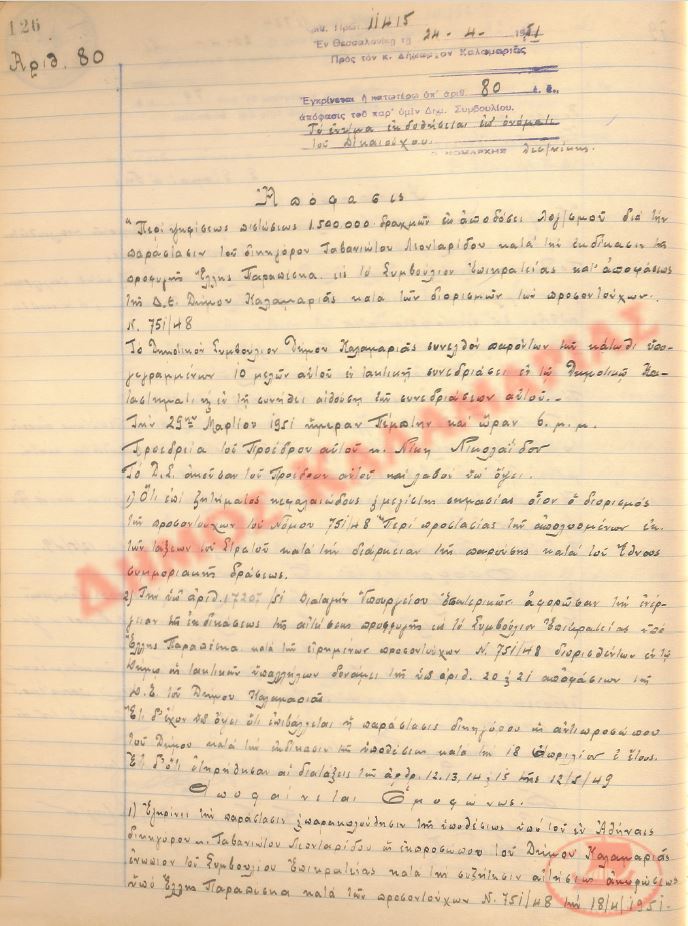 126
Αριθ. 80
Αριθ. Πρωτ. 11415
Ἐν Θεσσαλονίκῃ τῇ 24-4-1951
Πρὸς τὸν κ. Δήμαρχον Καλαμαριᾶς
Ἐγκρίνεται ἡ κατωτέρω ὑπ' ἀριθ. 80 ἐ. ἔ.
ἀπόφασις τοῦ παρ' ὑμῖν Δημ. Συμβουλίου.
Τὸ ἔνταλμα ἐκδοθήσεται ἐπ' ὀνόματι
τοῦ Δικαιούχου.
Ο ΝΟΜΑΡΧΗΣ Θεσ/νίκης.
Ἀπόφασις
"Περὶ ψηφίσεως πιστώσεως 1.500.000 δραχμῶν ἐπ' ἀποδόσει λογ/σμοῦ διὰ τὴν
παράστασιν τοῦ δικηγόρου Λεονταρίδου κατὰ τὴν ἐκδίκασιν τῆς
προσφυγῆς Ἕλλης Παραπέσκα εἰς τὸ Συμβούλιον Ἐπικρατείας κατ' ἀποφάσεως
τῆς Δ.Ε. Δήμου Καλαμαριᾶς κατὰ τῶν διορισμῶν τῶν προσοντούχων.
Ν. 751/48
Τὸ Δημοτικὸν Συμβούλιον Δήμου Καλαμαριᾶς συνελθὸν παρόντων τῶν κάτωθι ὑπο-
γεγραμμένων 10 μελῶν αὐτοῦ ἐν τακτικῇ συνεδριάσει ἐν τῷ Δημοτικῷ Κα-
ταστήματι κ ἐν τῇ συνήθει αἰθούσῃ τῶν συνεδριάσεων αὐτοῦ.-
Τὴν 29ην Μαρτίου 1951 ἡμέραν Πέμπτην καὶ ὥραν 6 μ.μ.
Προεδρείᾳ τοῦ Προέδρου αὐτοῦ κ. Νίκη Νικολαΐδου
Τὸ Δ.Σ. ἀκοῦσαν τοῦ Προέδρου αὐτοῦ καὶ λαβὸν ὑπ' ὄψει.
1) Ὅτι ἐπὶ ζητήματος κεφαλαιώδους κ μεγίστης σημασίας οἷον ὁ διορισμὸς
τῶν προσοντούχων τοῦ Νόμου 751/48 "Περὶ προστασίας τῶν ἀπολυομένων ἐκ
τῶν τάξεων τοῦ Στρατοῦ κατὰ τὴν διάρκειαν τῆς παρούσης κατὰ τοῦ Ἔθνους
συμμοριακῆς δράσεως.
2) Τὴν ὑπ' ἀριθ. 1720/51 Διαταγὴν Ὑπουργείου Ἐσωτερικῶν ἀφορῶσαν τὴν ἐνέρ-
γειαν τῆς ἐκδικάσεως τῆς αἰτήσεως προσφυγῆς εἰς τὸ Συμβούλιον Ἐπικρατείας ὑπὸ
Ἕλλης Παραπέσκα κατὰ τῶν εἰρημένων προσοντούχων Ν. 751/48 διορισθέντων ἐν τῷ
Δήμῳ ὡς τακτικῶν ὑπαλλήλων δυνάμει τῆς ὑπ' ἀριθ. 20 κ 21 ἀποφάσεων τῆς
Δ.Ε. τοῦ Δήμου Καλαμαριᾶς
Ἔτι δ' ἔχον ὑπ' ὄψει ὅτι ἐπιβάλλεται ἡ παράστασις δικηγόρου ὡς ἀντιπροσώπου
τοῦ Δήμου κατὰ τὴν ἐκδίκασιν τῆς ὑποθέσεως κατὰ τὴν 18 Ἀπριλίου ἐ. ἔτους.
Ἔτι δ' ὅτι ἐτηρήθησαν αἱ διατάξεις τῶν ἀρθρ. 12, 13, 14 κ 15 τῆς 12/5/49
Ἀποφαίνεται Ὁμοφώνως.
1) Ἐγκρίνει τὴν παράστασιν κ παρακολούθησιν τῆς ὑποθέσεως ὑπὸ τοῦ ἐν Ἀθήναις
δικηγόρου κ. Λεονταρίδου ὡς ἐκπροσώπου τοῦ Δήμου Καλαμαριᾶς
ἐνώπιον τοῦ Συμβουλίου Ἐπικρατείας κατὰ τὴν συζήτησιν αἰτήσεως ἀκυρώσεως
ὑπὸ Ἕλλης Παραπέσκα κατὰ τῶν προσοντούχων Ν. 751/48 τὴν 18/4/1951.
ΔΗΜΟΣ ΚΑΛΑΜΑΡΙΑΣ